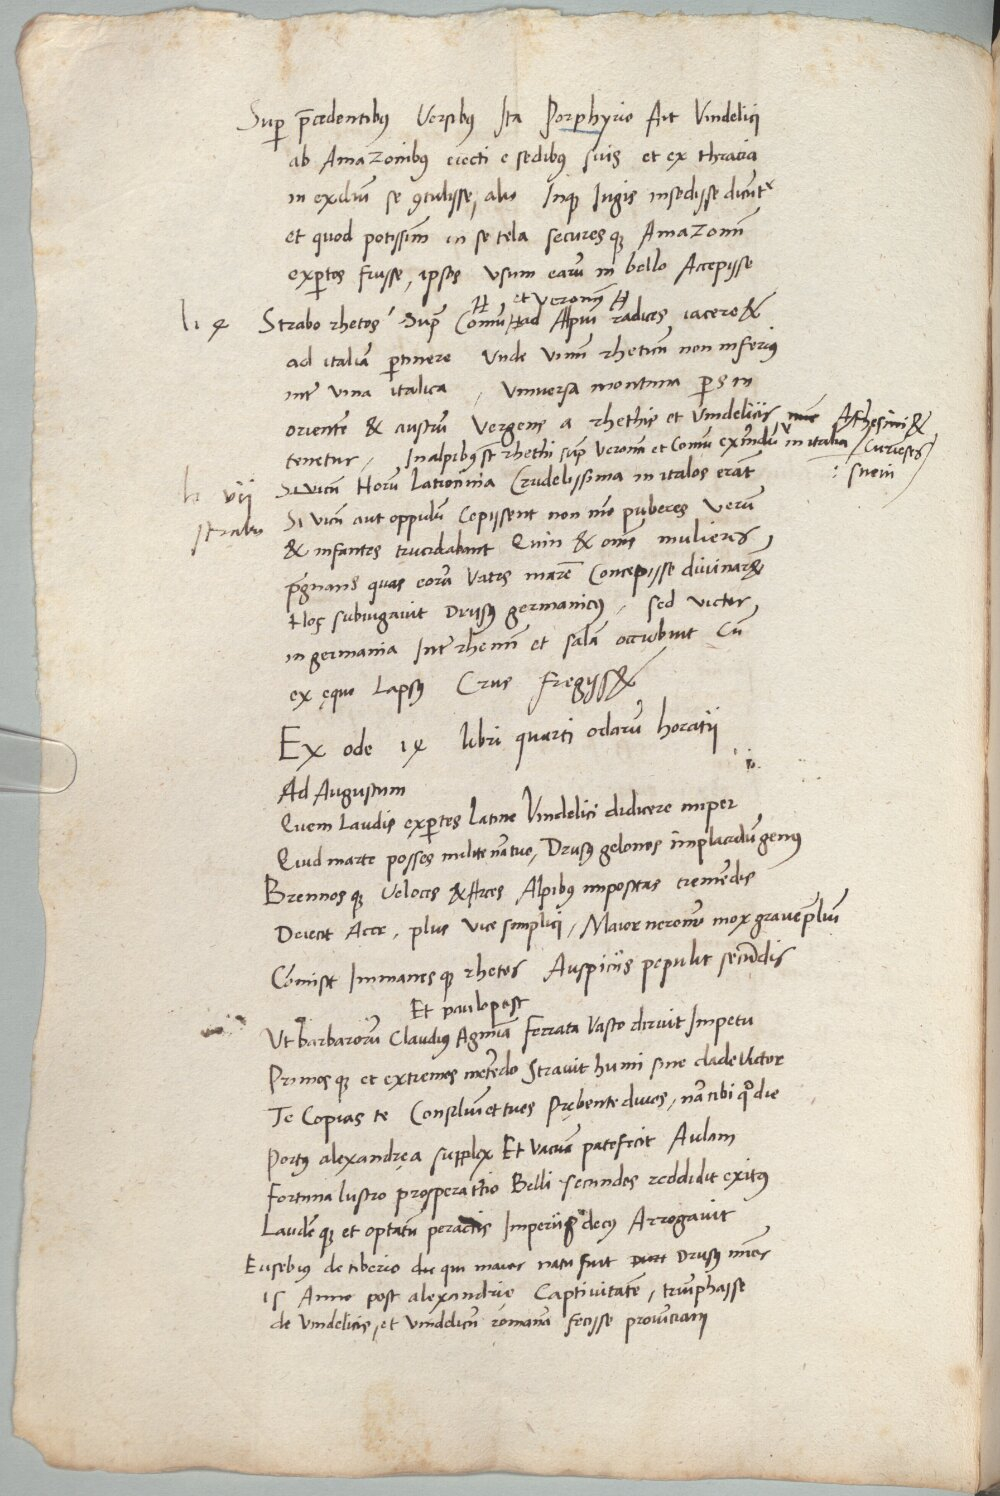 Sup p̄cedentibꝰ Versibꝰ Ita Porphyrio Ait Vindelici
ab Amazonibꝰ eiecti e sedibꝰ suis et ex thracia
in exiliū se ꝯtulisse, alii Inq̨ Iugis insedisse dicunt
et quod potissimū in se tela secures q̨ Amazonū
exp̱tos fuisse, ipsos usum earū in bello Accepisse
et Veronā
li 4 Strabo rhetos sup̄ Comū ad Alpiū radices iacere &
ad italiā p̱tinere Unde vinū rheticū non inferiꝰ
int̄ vina italica, Vniversa montana p̱s in
orientē & austrū Vergens a rhethis et Vindeliciis Athesini &
tenetur, In alpibꝰ st̄ rhethi sup̄ Veronā et Comū in italia
Suevi
li vii Si vicū Horū Latrocinia Crudelissima in italos erāt
strabo Si vicū aut oppidū Cepissent non mō puberes verū
& infantes trucidabant Quin & om̄s mulieres,
p̄gnans quas eorū Vates marē Concepisse divinar&
Hos subiugavit Drusꝰ germanicꝰ, sed victor,
in germania Int̄ rhenū et salā occubuit Cū
ex equo Lapsꝰ Crus fregiss&
Ex ode 14 libri quarti odarū horatii
Ad Augustum
Quem Laudis exp̱tes Latine Vindelici didicere nuper
Quid marte posses milite nā tuo, Drusꝰ gelonos implacidū genꝰ
Brennos q̨ Veloces & Arces Alpibꝰ impositas tremēdis
Deiecit Acer, plus vice simplici, Maior neronū mox grave p̄liū
Cōmisit Immanes q̨ rhetos Auspiciis pepulit secūdis
Et paulo post
Ut barbarorū Claudiꝰ Agmīa ferrata Vasto diruit Impetu
Primos q̨ et extremos metēdo Stravit humi sine clade Victor
Te Copias te Consiliū et tuos Prębente divos, nā tibi qͦ die
Portꝰ alexandrea supplex Et Vacuā patefecit Aulam
Fortuna lustro prospera t̄tio Belli secundos reddidit exitꝰ
Laudē q̨ et optatū peractis Imperiis decꝰ Arrogavit
Eusebiꝰ de tiberio qui maior natu fuit Drusꝰ
15 Anno post alexandrię Captivitatē, triūphasse
de Vindelicis, et Vindelicū romanā fecisse provinciam